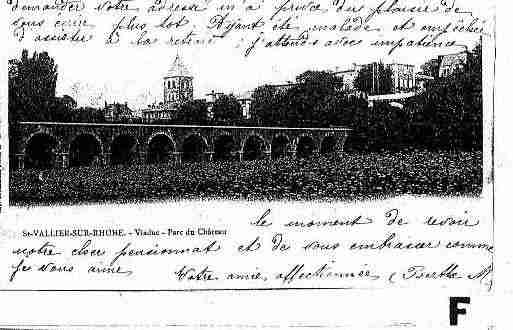 demander votre adresse m'a privée du plaisir de
vous écrire plus tôt. Ayant été malade et empêchée
d'assister à la
j'attends avec impatience
St-VALLIER-SUR-RHONE. - Viaduc - Parc du Château
le moment de revoir
notre cher pensionnat et de vous embrasser comme
je vous aime
Votre amie affectionnée (Berthe M)
F